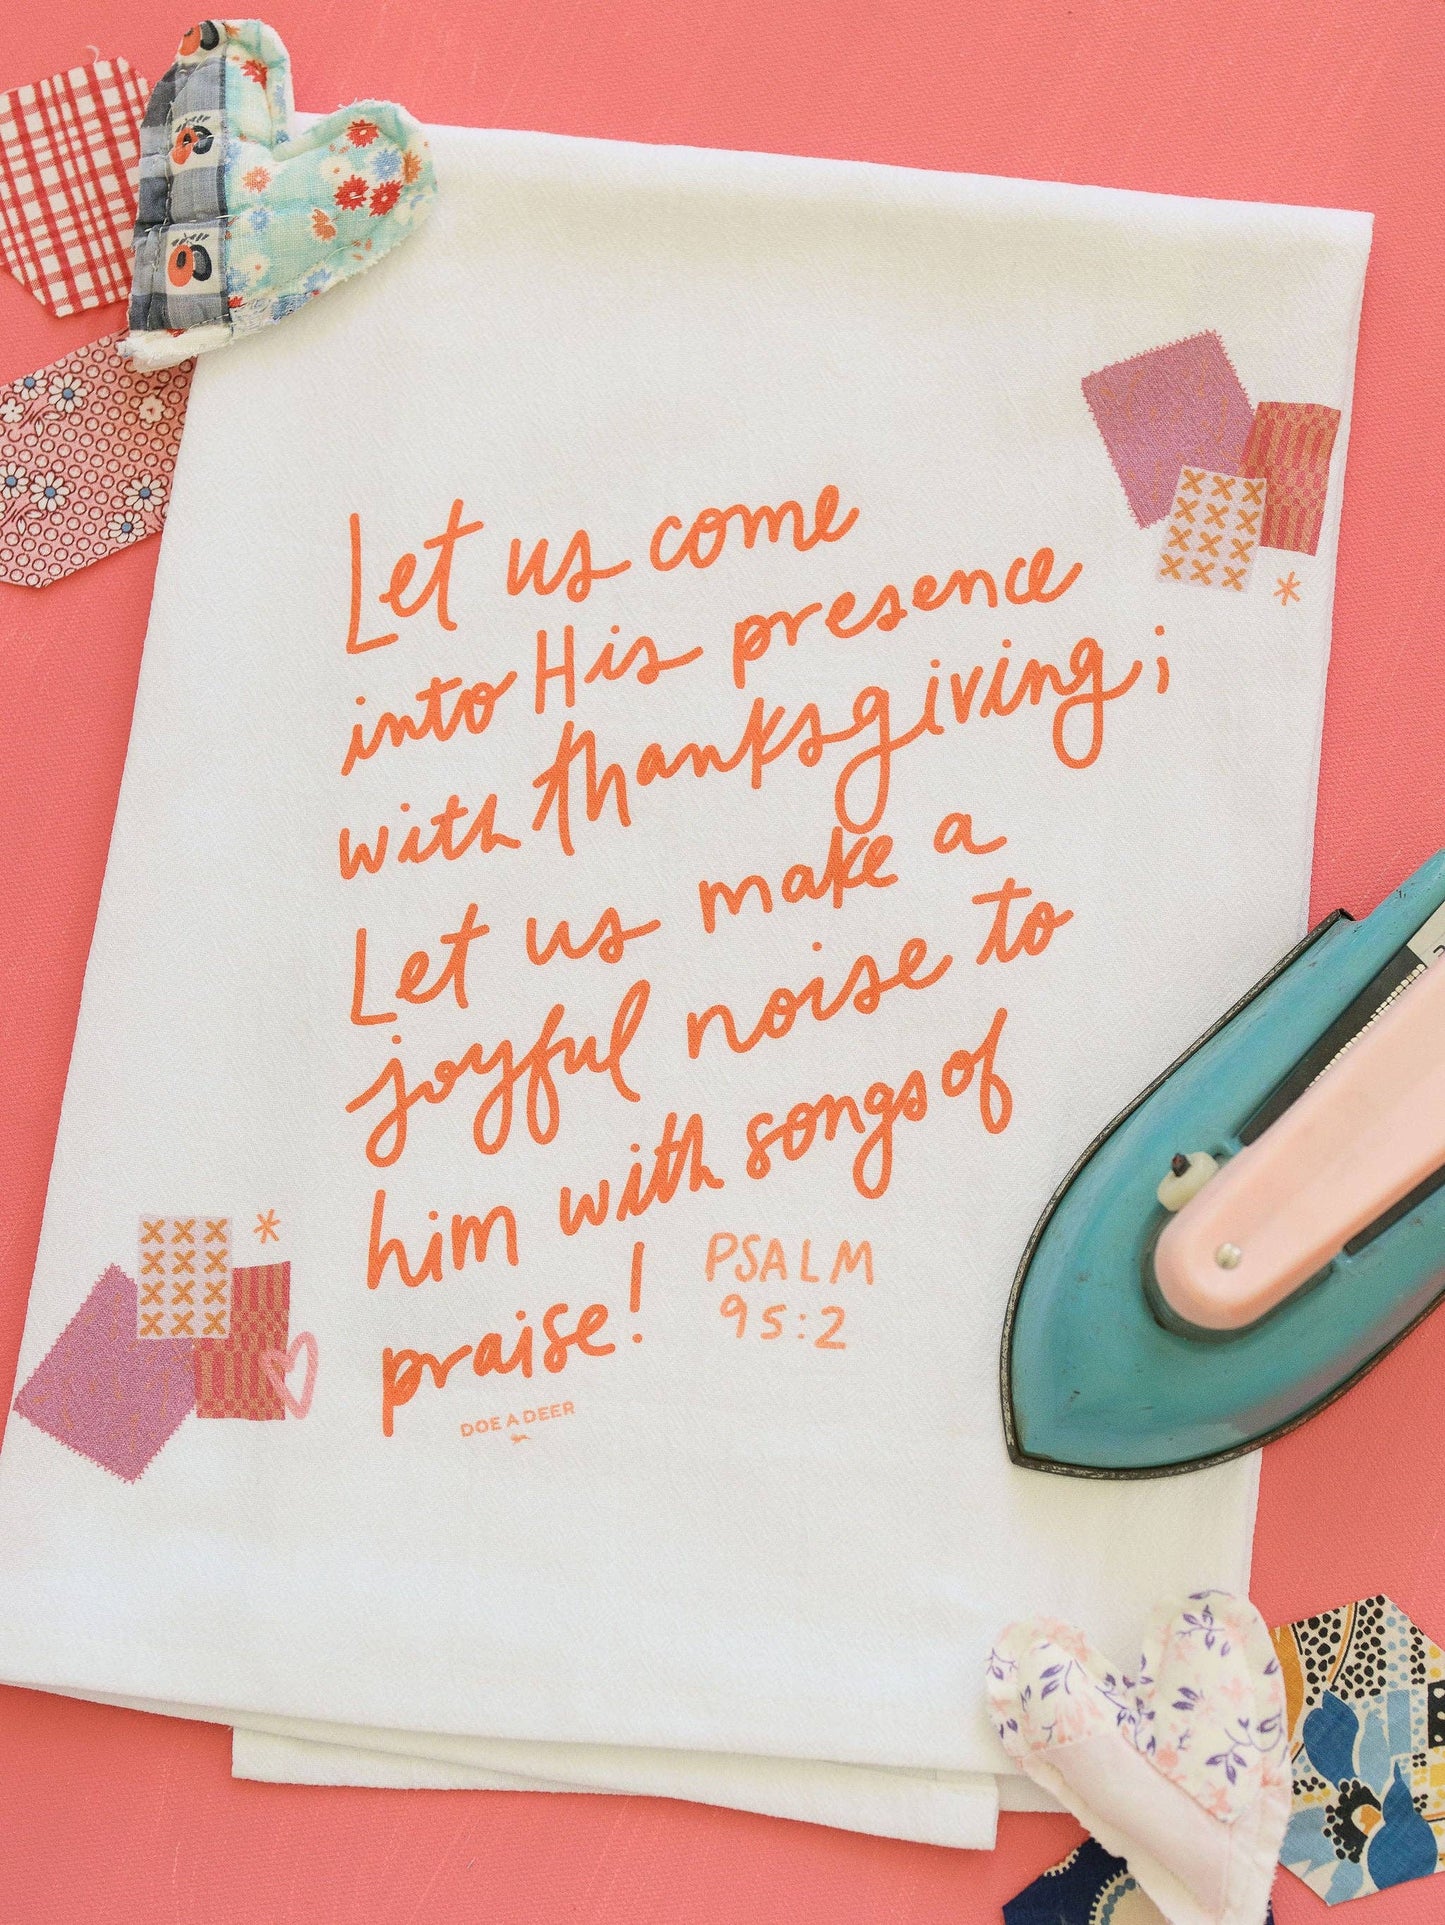 Let us come
into His presence
with thanksgiving;
Let us make a
joyful noise to
him with songs of
praise!
PSALM
95:2
DOE A DEER